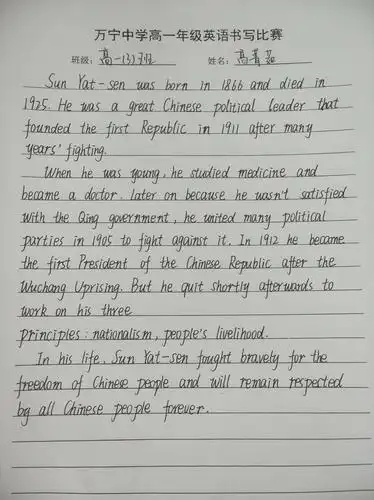 万宁中学高一年级英语书写比赛
班级: 高一(3)班 姓名: 高菁
Sun Yat-sen was born in 1866 and died in
1925. He was a great Chinese political leader that
founded the first Republic in 1911 after many
years' fighting.
When he was young, he studied medicine and
became a doctor. later on because he wasn't satisfied
with the Qing government, he united many political
parties in 1905 to fight against it. In 1912 he became
the first President of the Chinese Republic after the
Wuchang Uprising. But he quit shortly afterwards to
work on his three
principles: nationalism, people's livelihood.
In his life, Sun Yat-sen fought bravely for the
freedom of Chinese people and will remain respected
by all Chinese people forever.